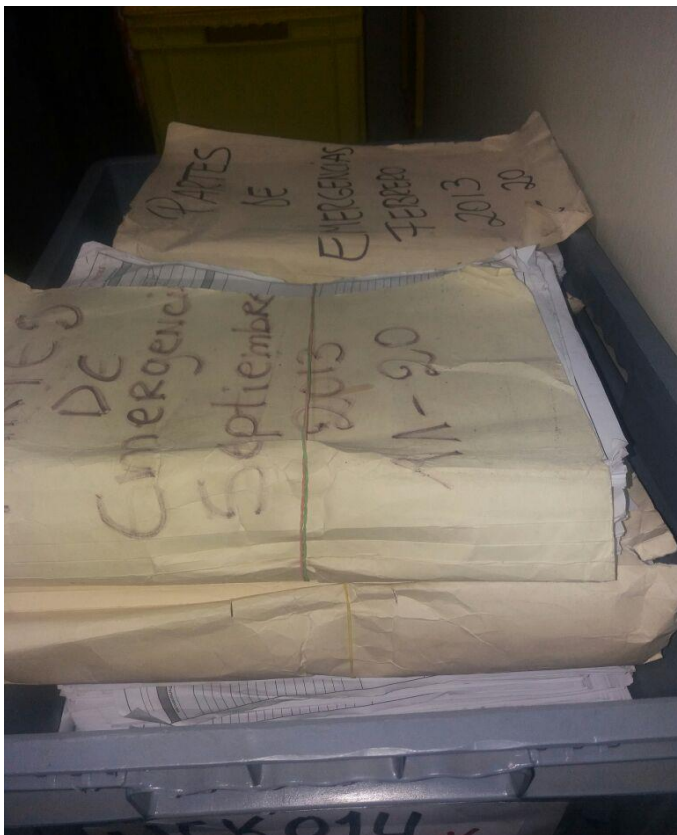 PARTES
DE
EMERGENCIAS
FEBRERO
2013
20
DE
Emergenci
Septiembre
2013
11-20
014